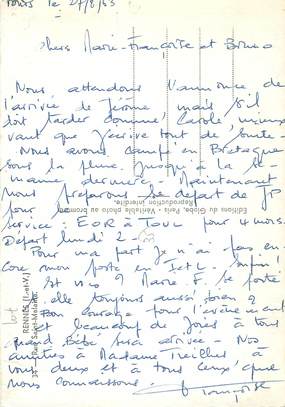 Tours le 27/8/63
Chers Marie-Françoise et Bruno
Nous attendons l'annonce de
l'arrivée de Jérôme mais s'il
doit tarder comme Carole, mieux
vaut que j'écrive tout de suite -
Nous avons campé en Bretagne
sous la pluie jusqu'à la se-
maine dernière - Maintenant
nous préparons le départ de JP
pour le
service : EOR à TOUL pour 4 mois.
Départ lundi 2 -
Pour ma part je n'ai pas en-
core mon poste en I et L. Enfin !
Et vous ? Marie F. se porte
elle toujours aussi bien ?
Bon courage pour l'événement
et beaucoup de joies à tous
quand Bébé sera arrivé - Nos
amitiés à Madame Treilles à
vous deux et à tous ceux que
nous connaissons.
Françoise
Editions du Globe, Paris - Véritable photo au bromure
Reproduction interdite.
RENNES (I.-et-V.)
Rue Saint-Melaine